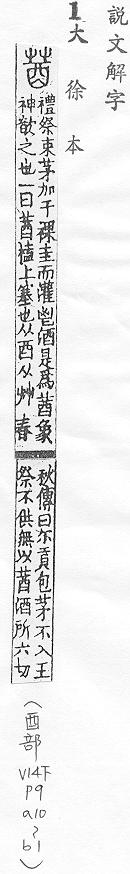 説文解字
1大徐本
莤
禮祭束茅加于祼圭而灌鬯酒是爲莤象
神歆之也一曰莤榼上塞也从酉从艸 春
秋傳曰尔貢包茅不入王
祭不供無以莤酒所六切
（酉部
V14下
P9
a10
~
b1）